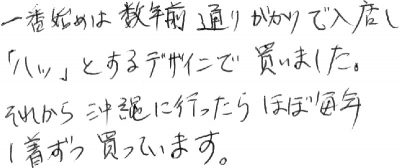 一番始めは数年前通りがかりで入店し
「ハッ」とするデザインで買いました。
それから沖縄に行ったらほぼ毎年
1着ずつ買っています。